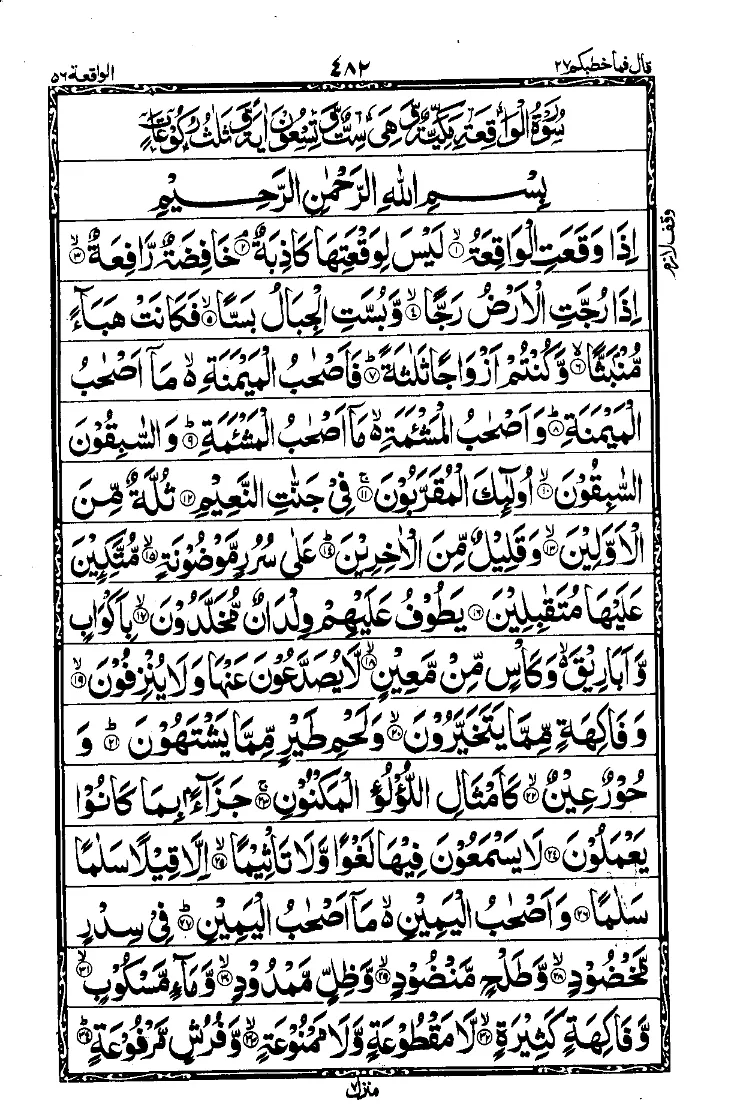 قال فماخطبكم ٢٧
٤٨٢
الواقعة ٥٦
سُوْرَةُ الْوَاقِعَةِ مَكِّيَّةٌ وَّهِيَ سِتٌّ وَّتِسْعُوْنَ اٰيَةً وَّثَلٰثُ رُكُوْعَاتٍ
بِسْمِ اللّٰهِ الرَّحْمٰنِ الرَّحِيْمِ
اِذَا وَقَعَتِ الْوَاقِعَةُ ۙ﴿۱﴾ لَيْسَ لِوَقْعَتِهَا كَاذِبَةٌ ۘ﴿۲﴾ خَافِضَةٌ رَّافِعَةٌ ۙ﴿۳﴾
وقف لازم
اِذَا رُجَّتِ الْاَرْضُ رَجًّا ۙ﴿۴﴾ وَّبُسَّتِ الْجِبَالُ بَسًّا ۙ﴿۵﴾ فَكَانَتْ هَبَآءً
مُّنْۢبَثًّا ۙ﴿۶﴾ وَّكُنْتُمْ اَزْوَاجًا ثَلٰثَةً ؕ﴿۷﴾ فَاَصْحٰبُ الْمَيْمَنَةِ ۙ۬ مَاۤ اَصْحٰبُ
الْمَيْمَنَةِ ؕ﴿۸﴾ وَاَصْحٰبُ الْمَشْـَٔمَةِ ۙ۬ مَاۤ اَصْحٰبُ الْمَشْـَٔمَةِ ؕ﴿۹﴾ وَالسّٰبِقُوْنَ
السّٰبِقُوْنَ ۙ﴿۱۰﴾ اُولٰٓئِكَ الْمُقَرَّبُوْنَ ۚ﴿۱۱﴾ فِيْ جَنّٰتِ النَّعِيْمِ ﴿۱۲﴾ ثُلَّةٌ مِّنَ
الْاَوَّلِيْنَ ۙ﴿۱۳﴾ وَقَلِيْلٌ مِّنَ الْاٰخِرِيْنَ ؕ﴿۱۴﴾ عَلٰى سُرُرٍ مَّوْضُوْنَةٍ ۙ﴿۱۵﴾ مُّتَّكِـِٕيْنَ
عَلَيْهَا مُتَقٰبِلِيْنَ ﴿۱۶﴾ يَطُوْفُ عَلَيْهِمْ وِلْدَانٌ مُّخَلَّدُوْنَ ۙ﴿۱۷﴾ بِاَكْوَابٍ
وَّاَبَارِيْقَ ۙ۬ وَكَاْسٍ مِّنْ مَّعِيْنٍ ۙ﴿۱۸﴾ لَّا يُصَدَّعُوْنَ عَنْهَا وَلَا يُنْزِفُوْنَ ۙ﴿۱۹﴾
وَفَاكِهَةٍ مِّمَّا يَتَخَيَّرُوْنَ ۙ﴿۲۰﴾ وَلَحْمِ طَيْرٍ مِّمَّا يَشْتَهُوْنَ ؕ﴿۲۱﴾ وَ
حُوْرٌ عِيْنٌ ۙ﴿۲۲﴾ كَاَمْثَالِ اللُّؤْلُؤِ الْمَكْنُوْنِ ۚ﴿۲۳﴾ جَزَآءًۢ بِمَا كَانُوْا
يَعْمَلُوْنَ ﴿۲۴﴾ لَا يَسْمَعُوْنَ فِيْهَا لَغْوًا وَّلَا تَاْثِيْمًا ۙ﴿۲۵﴾ اِلَّا قِيْلًا سَلٰمًا
سَلٰمًا ﴿۲۶﴾ وَاَصْحٰبُ الْيَمِيْنِ ۙ۬ مَاۤ اَصْحٰبُ الْيَمِيْنِ ؕ﴿۲۷﴾ فِيْ سِدْرٍ
مَّخْضُوْدٍ ۙ﴿۲۸﴾ وَّطَلْحٍ مَّنْضُوْدٍ ۙ﴿۲۹﴾ وَّظِلٍّ مَّمْدُوْدٍ ۙ﴿۳۰﴾ وَّمَآءٍ مَّسْكُوْبٍ ۙ﴿۳۱﴾
وَّفَاكِهَةٍ كَثِيْرَةٍ ۙ﴿۳۲﴾ لَّا مَقْطُوْعَةٍ وَّلَا مَمْنُوْعَةٍ ۙ﴿۳۳﴾ وَّفُرُشٍ مَّرْفُوْعَةٍ ؕ﴿۳۴﴾
منزل ٧